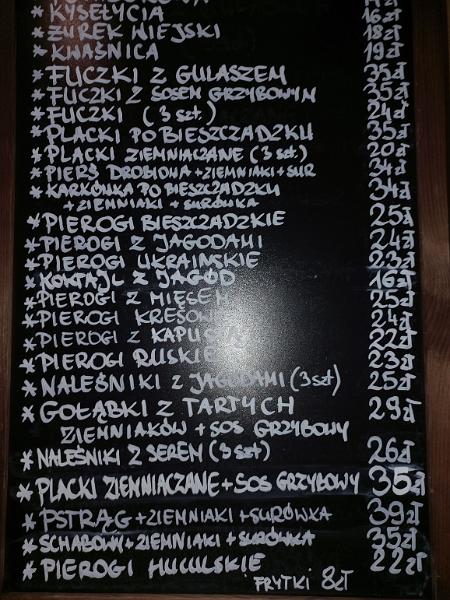 * KYSEŁYCIA 16zł
* ŻUREK WIEJSKI 18zł
* KWAŚNICA 19zł
* FUCZKI Z GULASZEM 35zł
* FUCZKI Z SOSEM GRZYBOWYM 35zł
* FUCZKI (3 szt.) 24zł
* PLACKI PO BIESZCZADZKU 35zł
* PLACKI ZIEMNIACZANE (3 szt.) 20zł
* PIERŚ DROBIOWA + ZIEMNIAKI + SUR 34zł
* KARKÓWKA PO BIESZCZADZKU 34zł
+ ZIEMNIAKI + SURÓWKA
* PIEROGI BIESZCZADZKIE 25zł
* PIEROGI Z JAGODAMI 24zł
* PIEROGI UKRAIŃSKIE 23zł
* KOKTAJL Z JAGÓD 16zł
* PIEROGI Z MIĘSEM 25zł
* PIEROGI 24zł
* PIEROGI Z 22zł
* PIEROGI RUSKIE 23zł
* NALEŚNIKI Z JAGODAMI (3szt) 25zł
* GOŁĄBKI Z TARTYCH 29zł
ZIEMNIAKÓW + SOS GRZYBOWY
* NALEŚNIKI Z SEREM (3 szt) 26zł
* PLACKI ZIEMNIACZANE + SOS GRZYBOWY 35zł
* PSTRĄG + ZIEMNIAKI + SURÓWKA 39zł
* SCHABOWY + ZIEMNIAKI + SURÓWKA 35zł
* PIEROGI HUCULSKIE 22zł
FRYTKI 8zł